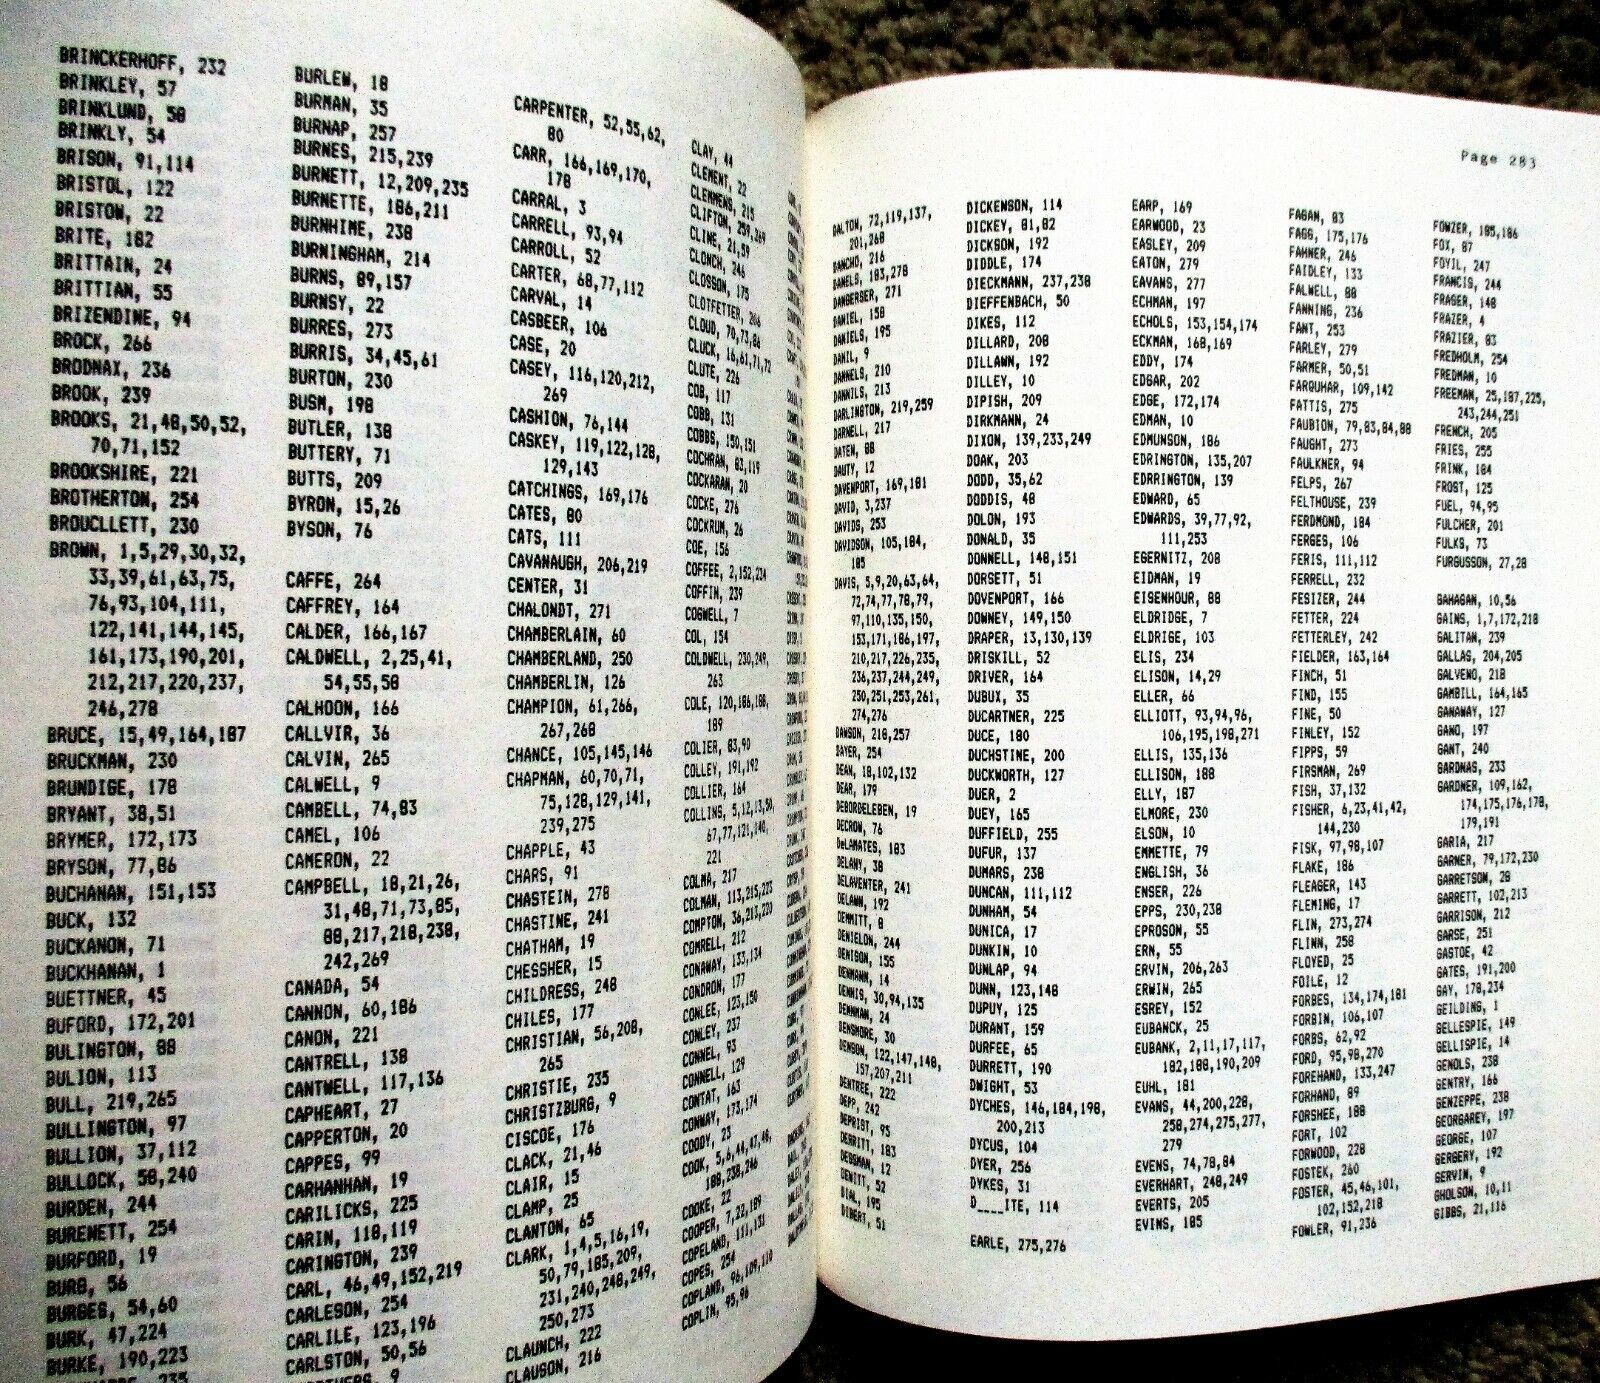 BRINCKERHOFF, 232
BRINKLEY, 57
BRINKLUND, 58
BRINKLY, 54
BRISON, 91,114
BRISTOL, 122
BRISTOW, 22
BRITE, 182
BRITTAIN, 24
BRITTIAN, 55
BRIZENDINE, 94
BROCK, 266
BRODNAX, 236
BROOK, 239
BROOKS, 21,48,50,52,
70,71,152
BROOKSHIRE, 221
BROTHERTON, 254
BROUCLLETT, 230
BROWN, 1,5,29,30,32,
33,39,61,63,75,
76,93,104,111,
122,141,144,145,
161,173,190,201,
212,217,220,237,
246,278
BRUCE, 15,49,164,187
BRUCKMAN, 230
BRUNDIGE, 178
BRYANT, 38,51
BRYMER, 172,173
BRYSON, 77,86
BUCHANAN, 151,153
BUCK, 132
BUCKANON, 71
BUCKHANAN, 1
BUETTNER, 45
BUFORD, 172,201
BULINGTON, 88
BULION, 113
BULL, 219,265
BULLINGTON, 97
BULLION, 37,112
BULLOCK, 58,240
BURDEN, 244
BURENETT, 254
BURFORD, 19
BURG, 56
BURGES, 54,60
BURK, 47,224
BURKE, 190,223
BURLEW, 18
BURMAN, 35
BURNAP, 257
BURNES, 215,239
BURNETT, 12,209,235
BURNETTE, 186,211
BURNHIME, 238
BURNINGHAM, 214
BURNS, 89,157
BURNSY, 22
BURRES, 273
BURRIS, 34,45,61
BURTON, 230
BUSM, 198
BUTLER, 138
BUTTERY, 71
BUTTS, 209
BYRON, 15,26
BYSON, 76
CAFFE, 264
CAFFREY, 164
CALDER, 166,167
CALDWELL, 2,25,41,
54,55,58
CALHOON, 166
CALLVIR, 36
CALVIN, 265
CALWELL, 9
CAMBELL, 74,83
CAMEL, 106
CAMERON, 22
CAMPBELL, 18,21,26,
31,48,71,73,85,
88,217,218,238,
242,269
CANADA, 54
CANNON, 60,186
CANON, 221
CANTRELL, 138
CANTWELL, 117,136
CAPHEART, 27
CAPPERTON, 20
CAPPES, 99
CARHANHAN, 19
CARILICKS, 225
CARIN, 118,119
CARINGTON, 239
CARL, 46,49,152,219
CARLESON, 254
CARLILE, 123,196
CARLSTON, 50,56
CARPENTER, 52,55,62,
80
CARR, 166,169,170,
178
CARRAL, 3
CARRELL, 93,94
CARROLL, 52
CARTER, 68,77,112
CARVAL, 14
CASBEER, 106
CASE, 20
CASEY, 116,120,212,
269
CASHION, 76,144
CASKEY, 119,122,128,
129,143
CATCHINGS, 169,176
CATES, 80
CATS, 111
CAVANAUGH, 206,219
CENTER, 31
CHALONDT, 271
CHAMBERLAIN, 60
CHAMBERLAND, 250
CHAMBERLIN, 126
CHAMPION, 61,266,
267,268
CHANCE, 105,145,146
CHAPMAN, 60,70,71,
75,128,129,141,
239,275
CHAPPLE, 43
CHARS, 91
CHASTEIN, 278
CHASTINE, 241
CHATHAM, 19
CHESSHER, 15
CHILDRESS, 248
CHILES, 177
CHRISTIAN, 56,208,
265
CHRISTIE, 235
CHRISTZBURG, 9
CISCOE, 176
CLACK, 21,46
CLAIR, 15
CLAMP, 25
CLANTON, 65
CLARK, 1,4,5,16,19,
50,79,185,209,
231,240,248,249,
250,273
CLAUNCH, 222
CLAUSON, 216
CLAY, 44
CLEMENT, 22
CLEMMENS, 215
CLIFTON, 259,269
CLINE, 21,59
CLONCH, 246
CLOSSON, 175
CLOTFETTER, 206
CLOUD, 70,73,86
CLUCK, 16,61,71,72
CLUTE, 226
COB, 117
COBB, 131
COBBS, 150,151
COCHRAN, 83,119
COCKARAN, 20
COCKE, 276
COCKRUM, 26
COE, 156
COFFEE, 2,152,234
COFFIN, 239
COGWELL, 7
COL, 154
COLDWELL, 230,249,
263
COLE, 120,186,188,
189
COLIER, 83,90
COLLEY, 191,192
COLLIER, 164
COLLINS, 5,12,13,50,
67,77,121,140,
221
COLMA, 217
COLMAN, 113,215,223
COMPTON, 36,213,220
COMRELL, 212
CONAWAY, 133,134
CONDRON, 177
CONLEE, 123,150
CONLEY, 237
CONNEL, 93
CONNELL, 129
CONTAT, 163
CONWAY, 173,174
COODY, 23
COOK, 5,6,44,47,48,
188,238,246
COOKE, 22
COOPER, 7,22,189
COPELAND, 111,131
COPES, 254
COPLAND, 96,109,110
COPLIN, 95,96
Page 283
DALTON, 72,119,137,
201,268
DANCHO, 216
DANELS, 183,278
DANGERSER, 271
DANIEL, 158
DANIELS, 195
DANIL, 9
DANNELS, 210
DANNILS, 213
DARLINGTON, 219,259
DARNELL, 217
DATEN, 88
DAUTY, 12
DAVENPORT, 169,181
DAVID, 3,237
DAVIDS, 253
DAVIDSON, 105,184,
185
DAVIS, 5,9,20,63,64,
72,74,77,78,79,
97,110,135,150,
153,171,186,197,
210,217,226,235,
236,237,244,249,
250,251,253,261,
274,276
DAWSON, 218,257
DAYER, 254
DEAN, 18,102,132
DEAR, 179
DEBORDELEBEN, 19
DECRON, 76
DELAMATES, 183
DELANY, 38
DELAVENTER, 241
DELAWN, 192
DEMMITT, 8
DENIELON, 244
DENISON, 155
DENMANN, 14
DENNIS, 30,94,135
DENNMAN, 24
DENSMORE, 30
DENSON, 122,147,148,
157,207,211
DENTREE, 222
DEPP, 242
DEPRIST, 95
DERRITT, 183
DESSMAN, 12
DEWITT, 52
DIAL, 195
DIBERT, 51
DICKENSON, 114
DICKEY, 81,82
DICKSON, 192
DIDDLE, 174
DIECKMANN, 237,238
DIEFFENBACH, 50
DIKES, 112
DILLARD, 208
DILLAWN, 192
DILLEY, 10
DIPISH, 209
DIRKMANN, 24
DIXON, 139,233,249
DOAK, 203
DODD, 35,62
DODDIS, 48
DOLON, 193
DONALD, 35
DONNELL, 148,151
DORSETT, 51
DOVENPORT, 166
DOWNEY, 149,150
DRAPER, 13,130,139
DRISKILL, 52
DRIVER, 164
DUBUX, 35
DUCARTNER, 225
DUCE, 180
DUCHSTINE, 200
DUCKWORTH, 127
DUER, 2
DUEY, 165
DUFFIELD, 255
DUFUR, 137
DUMARS, 238
DUNCAN, 111,112
DUNHAM, 54
DUNICA, 17
DUNKIN, 10
DUNLAP, 94
DUNN, 123,148
DUPUY, 125
DURANT, 159
DURFEE, 65
DURRETT, 190
DWIGHT, 53
DYCHES, 146,184,198,
200,213
DYCUS, 104
DYER, 256
DYKES, 31
D____ITE, 114
EARLE, 275,276
EARP, 169
EARWOOD, 23
EASLEY, 209
EATON, 279
EAVANS, 277
ECHMAN, 197
ECHOLS, 153,154,174
ECKMAN, 168,169
EDDY, 174
EDGAR, 202
EDGE, 172,174
EDMAN, 10
EDMUNSON, 186
EDRINGTON, 135,207
EDRRINGTON, 139
EDWARD, 65
EDWARDS, 39,77,92,
111,253
EGERNITZ, 208
EIDMAN, 19
EISENHOUR, 88
ELDRIDGE, 7
ELDRIGE, 103
ELIS, 234
ELISON, 14,29
ELLER, 66
ELLIOTT, 93,94,96,
106,195,198,271
ELLIS, 135,136
ELLISON, 188
ELLY, 187
ELMORE, 230
ELSON, 10
EMMETTE, 79
ENGLISH, 36
ENSER, 226
EPPS, 230,238
EPROSON, 55
ERN, 55
ERVIN, 206,263
ERWIN, 265
ESREY, 152
EUBANCK, 25
EUBANK, 2,11,17,117,
182,188,190,209
EUHL, 181
EVANS, 44,200,228,
258,274,275,277,
279
EVENS, 74,78,84
EVERHART, 248,249
EVERTS, 205
EVINS, 185
FAGAN, 83
FAGG, 175,176
FAHNER, 246
FAIDLEY, 133
FALWELL, 88
FANNING, 236
FANT, 253
FARLEY, 279
FARMER, 50,51
FARQUHAR, 109,142
FATTIS, 275
FAUBION, 79,83,84,88
FAUGHT, 273
FAULKNER, 94
FELPS, 267
FELTHOUSE, 239
FERDMOND, 184
FERGES, 106
FERIS, 111,112
FERRELL, 232
FESIZER, 244
FETTER, 224
FETTERLEY, 242
FIELDER, 163,164
FINCH, 51
FIND, 155
FINE, 50
FINLEY, 152
FIPPS, 59
FIRSMAN, 269
FISH, 37,132
FISHER, 6,23,41,42,
144,230
FISK, 97,98,107
FLAKE, 186
FLEAGER, 143
FLEMING, 17
FLIN, 273,274
FLINN, 258
FLOYED, 25
FOILE, 12
FORBES, 134,174,181
FORBIN, 106,107
FORBS, 62,92
FORD, 95,98,270
FOREHAND, 133,247
FORHAND, 89
FORSHEE, 188
FORT, 102
FORWOOD, 228
FOSTEK, 260
FOSTER, 45,46,101,
102,152,218
FOWLER, 91,236
FOWZER, 185,186
FOX, 87
FOYIL, 247
FRANCIS, 244
FRAGER, 148
FRAZER, 4
FRAZIER, 83
FREDHOLM, 254
FREDMAN, 10
FREEMAN, 25,187,225,
243,244,251
FRENCH, 205
FRIES, 255
FRINK, 184
FROST, 125
FUEL, 94,95
FULCHER, 201
FULKS, 73
FURGUSSON, 27,28
GAHAGAN, 10,56
GAINS, 1,7,172,218
GALITAN, 239
GALLAS, 204,205
GALVENO, 218
GAMBILL, 164,165
GANAWAY, 127
GANO, 197
GANT, 240
GARDNAS, 233
GARDNER, 109,162,
174,175,176,178,
179,191
GARIA, 217
GARNER, 79,172,230
GARRETSON, 28
GARRETT, 102,213
GARRISON, 212
GARSE, 251
GASTOE, 42
GATES, 191,200
GAY, 178,234
GEILDING, 1
GELLESPIE, 149
GELLISPIE, 14
GENOLS, 238
GENTRY, 166
GENZEPPE, 238
GEORGAREY, 197
GEORGE, 107
GERGERY, 192
GERVIN, 9
GHOLSON, 10,11
GIBBS, 21,116